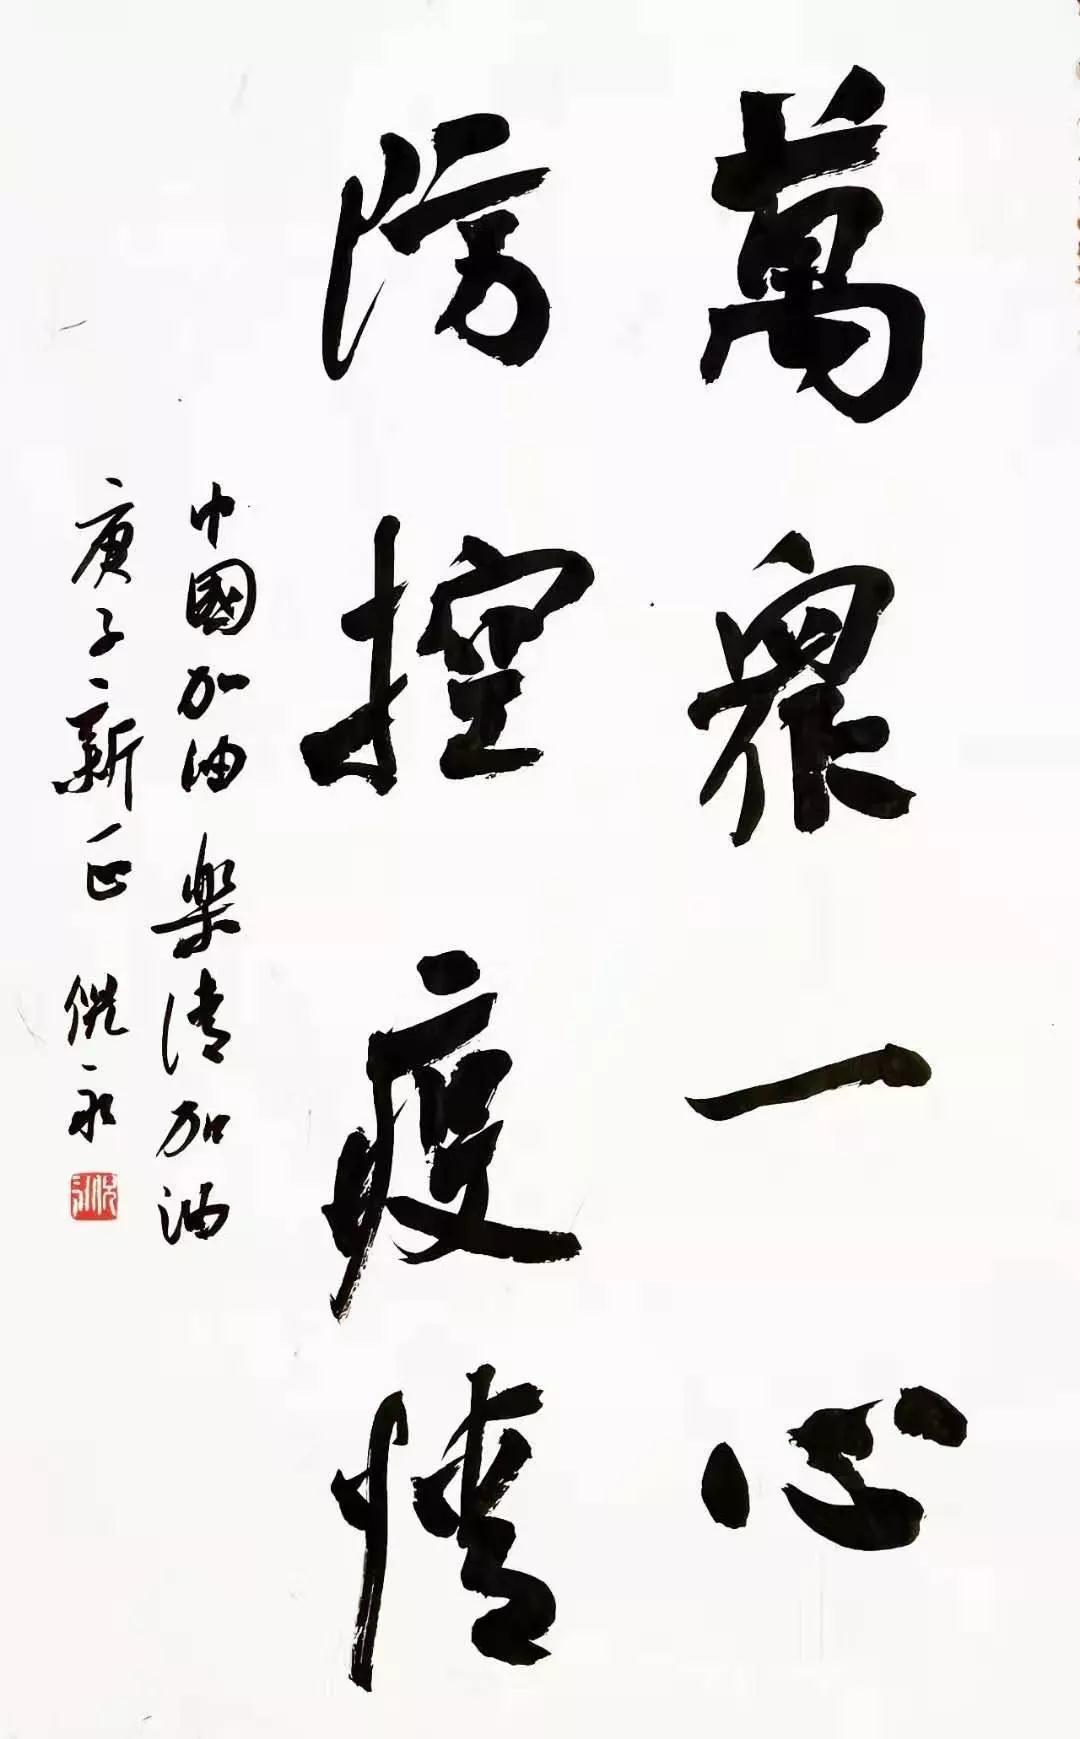 萬眾一心
防控疫情
中國加油 樂清加油
庚子新正 倪永
倪永